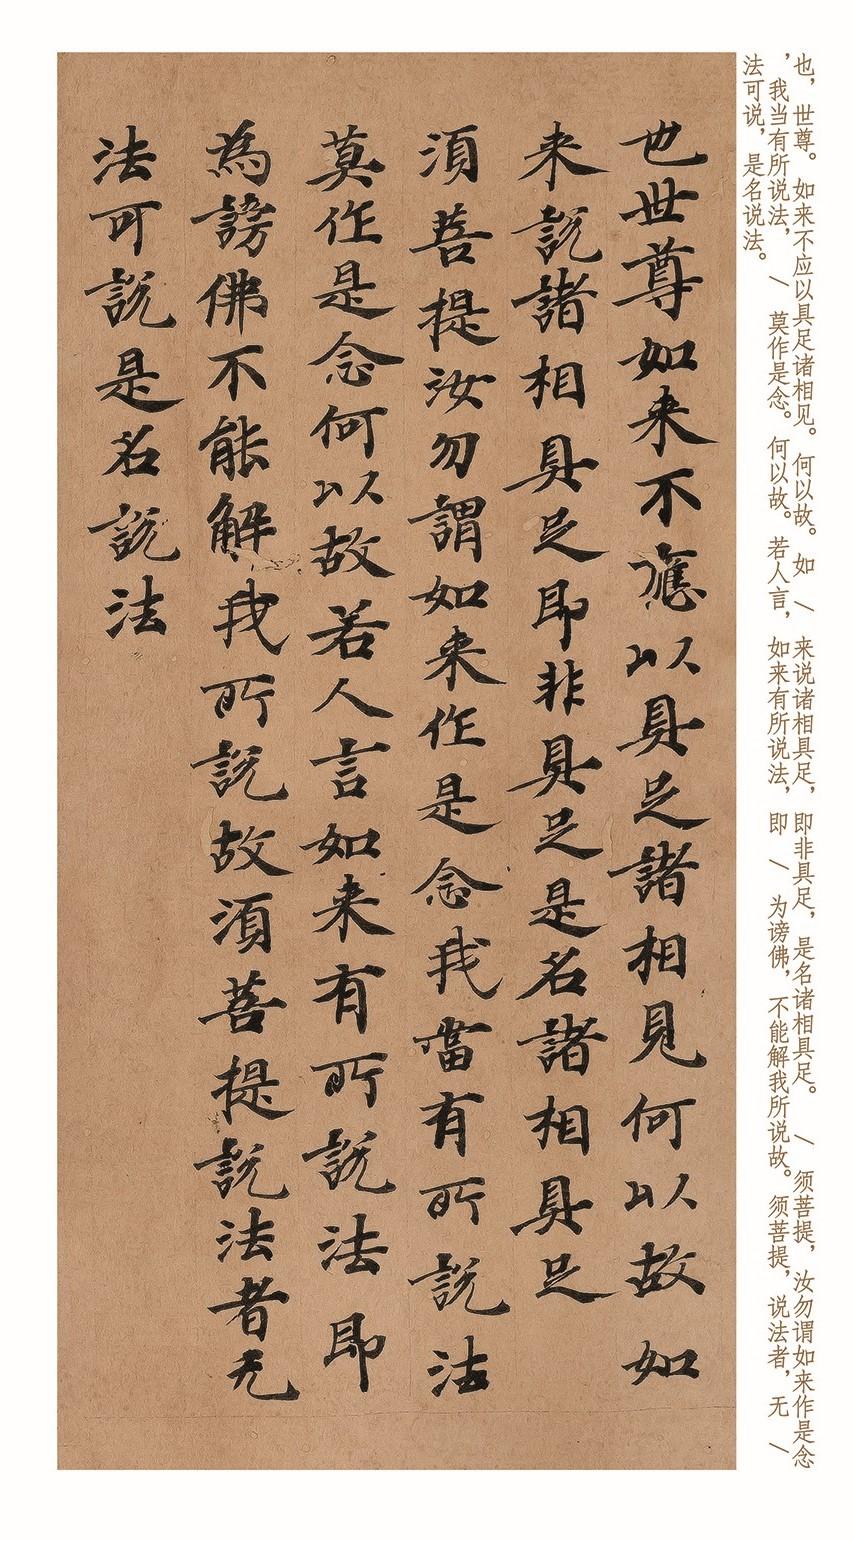 也，世尊。如来不应以具足诸相见。何以故。如\来说诸相具足，即非具足，是名诸相具足。\须菩提，汝勿谓如来作是念
，我当有所说法，\莫作是念。何以故。若人言，如来有所说法，即\为谤佛，不能解我所说故。须菩提，说法者，无\
法可说，是名说法。
也世尊如来不應以具足諸相見何以故如
来說諸相具足即非具足是名諸相具足
須菩提汝勿謂如来作是念我當有所說法
莫作是念何以故若人言如来有所說法即
為謗佛不能解我所說故須菩提說法者无
法可說是名說法